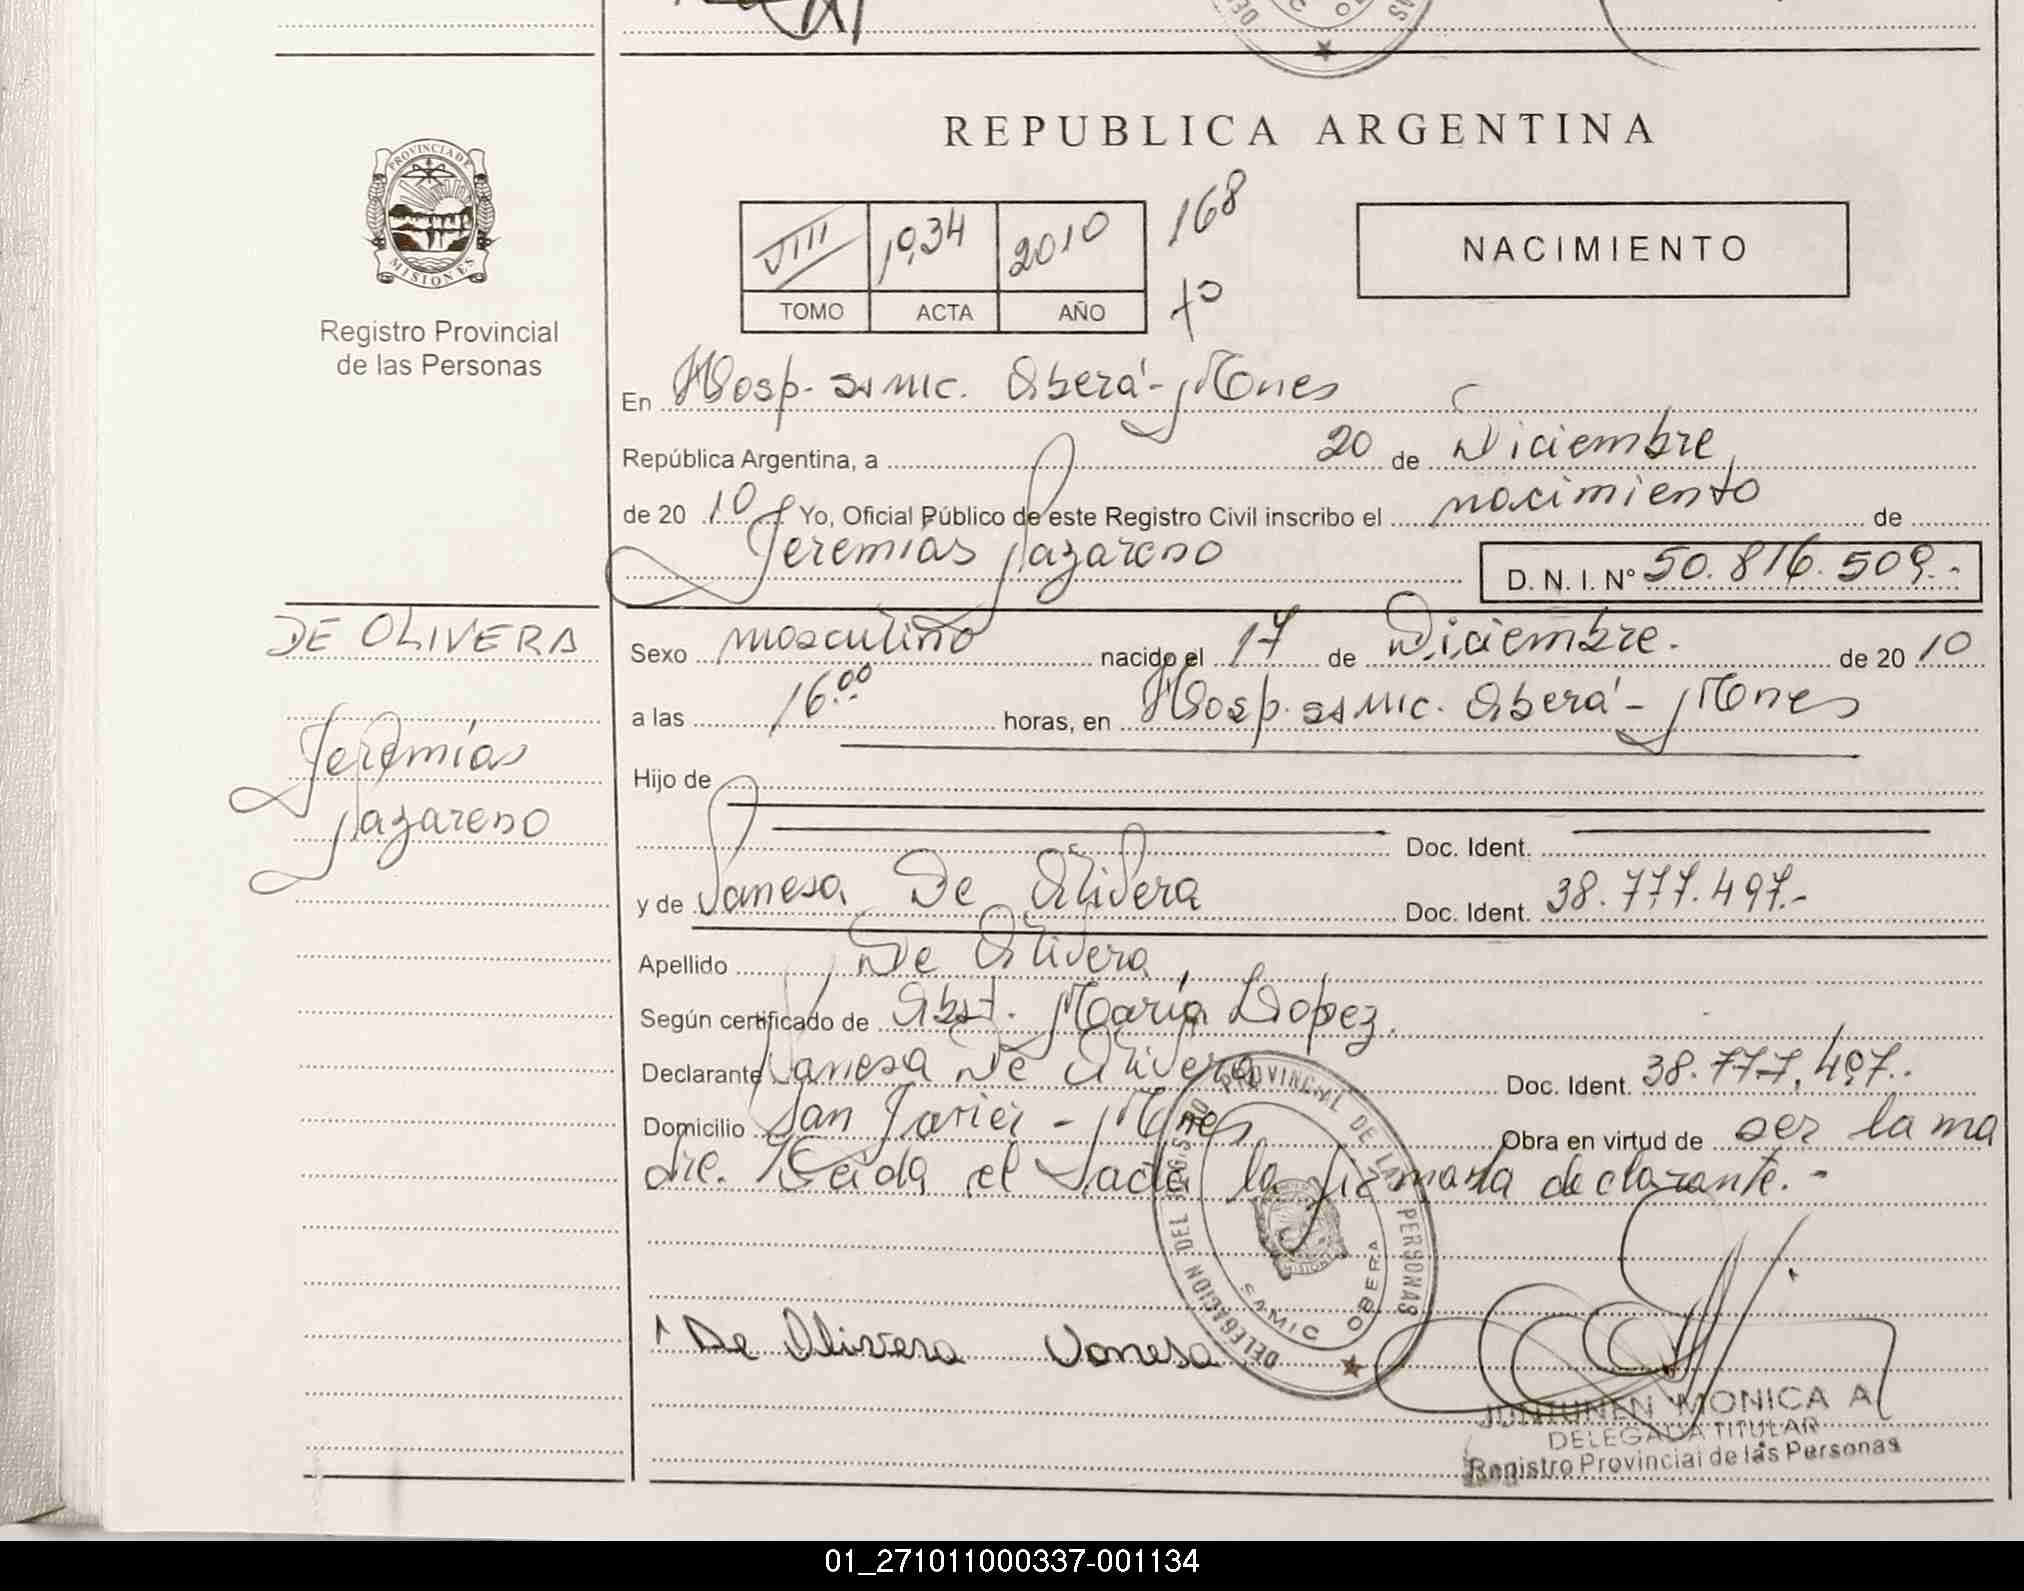 REPUBLICA ARGENTINA
PROVINCIA DE
MISIONES
Registro Provincial
de las Personas
VIII 1934 2010 168
TOMO ACTA AÑO fº
NACIMIENTO
En Hosp. SAMIC. Oberá - Mnes
República Argentina, a 20 de Diciembre
de 20 10 Yo, Oficial Público de este Registro Civil inscribo el nacimiento de
Jeremías Nazareno D. N. I. Nº 50.816.509.-
DE OLIVERA
Jeremías
Nazareno
Sexo masculino nacido el 17 de Diciembre. de 20 10
a las 16.00 horas, en Hosp. SAMIC. Oberá - Mnes
Hijo de
Doc. Ident.
y de Vanesa De Olivera Doc. Ident. 38.777.497.-
Apellido De Olivera
Según certificado de Obst. María Lopez.
Declarante Vanesa De Olivera Doc. Ident. 38.777.497.-
Domicilio San Javier - Mnes Obra en virtud de ser la ma
dre. Leída el acta la firma la declarante.-
DELEGACION DEL REGISTRO PROVINCIAL DE LAS PERSONAS
SAMIC OBERA
De Olivera Vanesa
JUNTUNEN MONICA A
DELEGADA TITULAR
Registro Provincial de las Personas
01_271011000337-001134